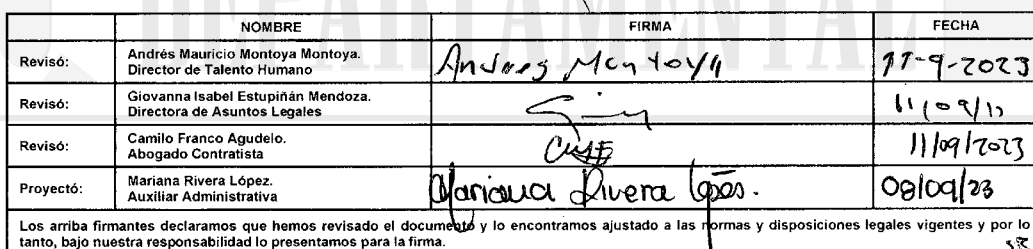 DEPARTAMENTAL
NOMBRE FIRMA FECHA
Revisó: Andrés Mauricio Montoya Montoya.
Director de Talento Humano Andres Montoya 11-9-2023
Revisó: Giovanna Isabel Estupiñán Mendoza.
Directora de Asuntos Legales
Revisó: Camilo Franco Agudelo.
Abogado Contratista 11/09/2023
Proyectó: Mariana Rivera López.
Auxiliar Administrativa Mariana Rivera López. 08/09/23
Los arriba firmantes declaramos que hemos revisado el documento y lo encontramos ajustado a las normas y disposiciones legales vigentes y por lo
tanto, bajo nuestra responsabilidad lo presentamos para la firma.